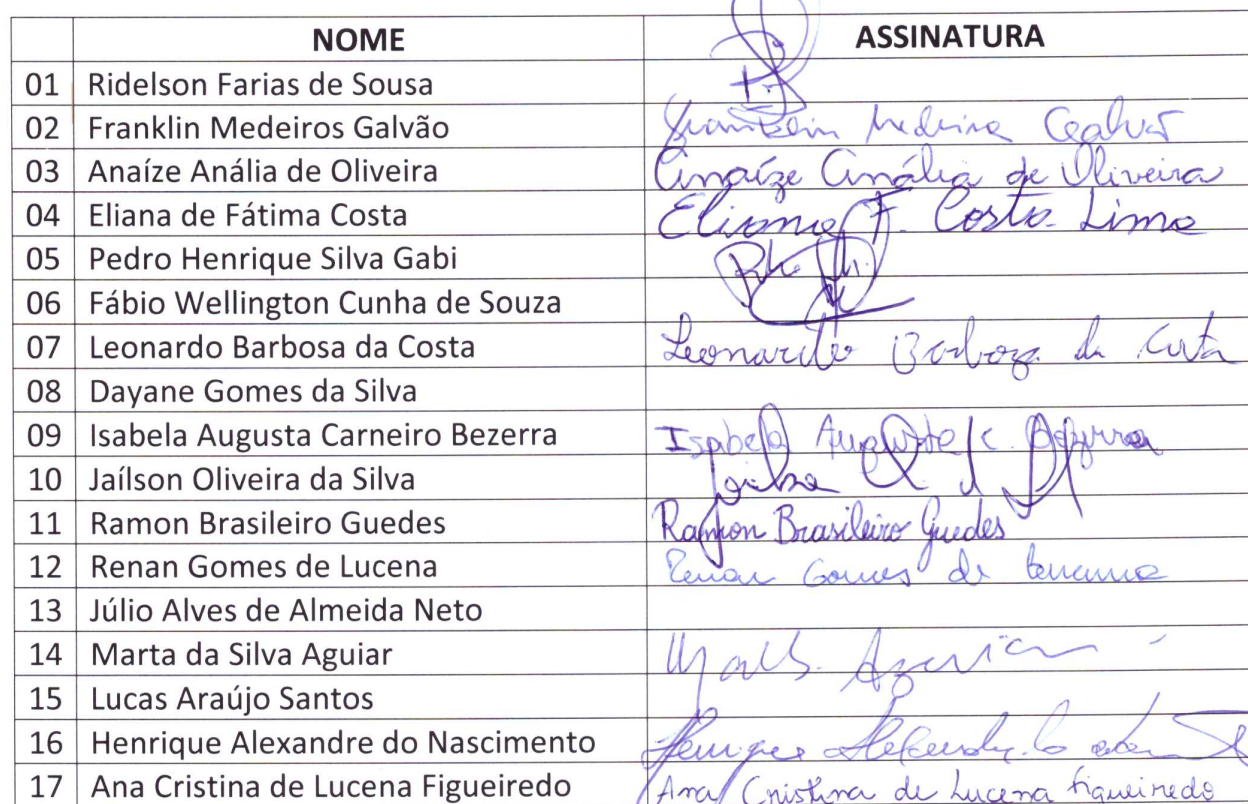 NOME ASSINATURA
01 Ridelson Farias de Sousa
02 Franklin Medeiros Galvão Franklin Medeiros Galvão
03 Anaíze Anália de Oliveira Anaíze Anália de Oliveira
04 Eliana de Fátima Costa Eliana F. Costa Lima
05 Pedro Henrique Silva Gabi
06 Fábio Wellington Cunha de Souza
07 Leonardo Barbosa da Costa Leonardo Barboza da Costa
08 Dayane Gomes da Silva
09 Isabela Augusta Carneiro Bezerra Isabela Augusta C. Bezerra
10 Jaílson Oliveira da Silva
11 Ramon Brasileiro Guedes Ramon Brasileiro Guedes
12 Renan Gomes de Lucena Renan Gomes de Lucena
13 Júlio Alves de Almeida Neto
14 Marta da Silva Aguiar
15 Lucas Araújo Santos
16 Henrique Alexandre do Nascimento Henrique Alexandre do
17 Ana Cristina de Lucena Figueiredo Ana Cristina de Lucena Figueiredo